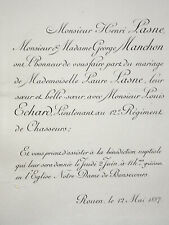 Monsieur Henri Lasne,
Monsieur & Madame George Manchon
ont l'honneur de vous faire part du mariage
de Mademoiselle Laure Lasne, leur
sœur et belle-sœur, avec Monsieur Louis
Echard, Lieutenant au 12e Régiment
de Chasseurs;
Et vous prient d'assister à la bénédiction nuptiale
qui leur sera donnée le Jeudi 2 Juin, à 11h ½ précises
en l'Eglise Notre Dame de Bonsecours.
Rouen, le 12 Mai 1887